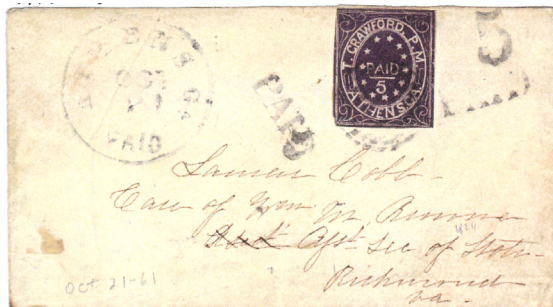 ATHENS GA
OCT
21
PAID
PAID
T. CRAWFORD, P.M.
PAID
5
ATHENS, GA.
5
PAID
Lamar Cobb
Care of Wm M. Browne
Asst Sec of State
Richmond
Va
OCT 21-61